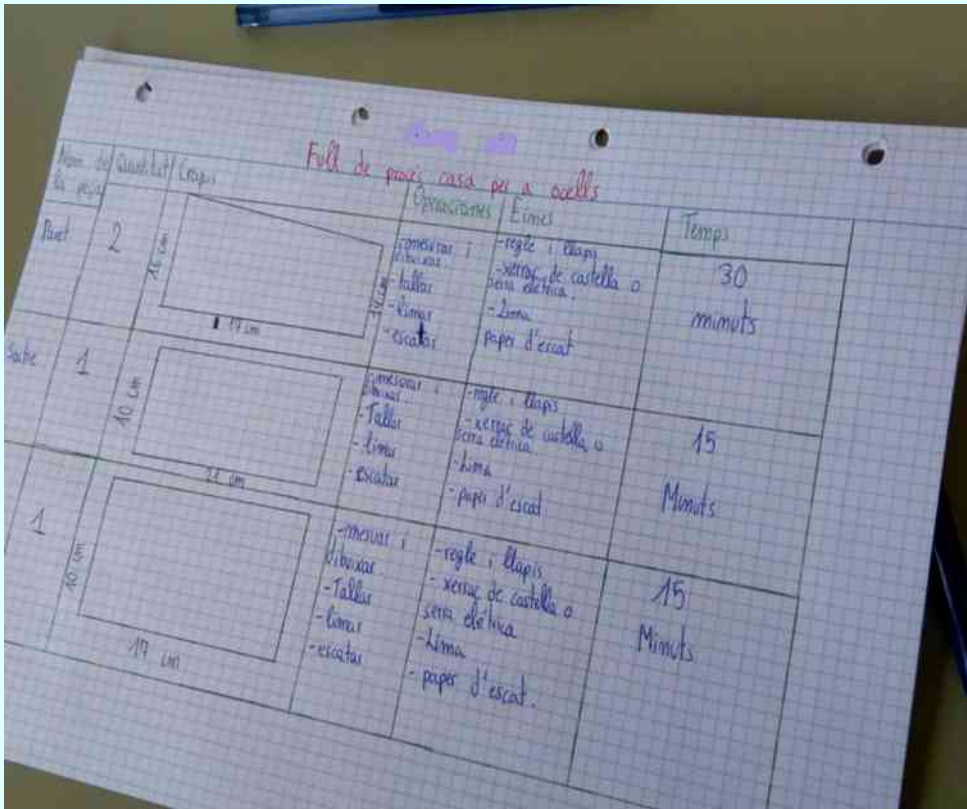 Full de procés casa per a ocells
Nom de la peça
Quantitat
Croquis
Operaciones
Eines
Temps
Paret
2
16 cm
14 cm
17 cm
-mesurar i
dibuixar.
-tallar
-limar
-escatar
-regle i llapis
-xerrac de costella o
serra elèctrica.
-Lima
paper d'escat
30
minuts
1
10 cm
21 cm
-mesurar i
dibuixar.
-Tallar
-limar
-escatar
-regle i llapis
-xerrac de costella o
serra elèctrica
-Lima
-paper d'escat
15
Minuts
1
10 cm
17 cm
-mesurar i
dibuixar
-Tallar
-limar
-escatar
-regle i llapis
-xerrac de costella o
serra elètrica
-Lima
-paper d'escat.
15
Minuts